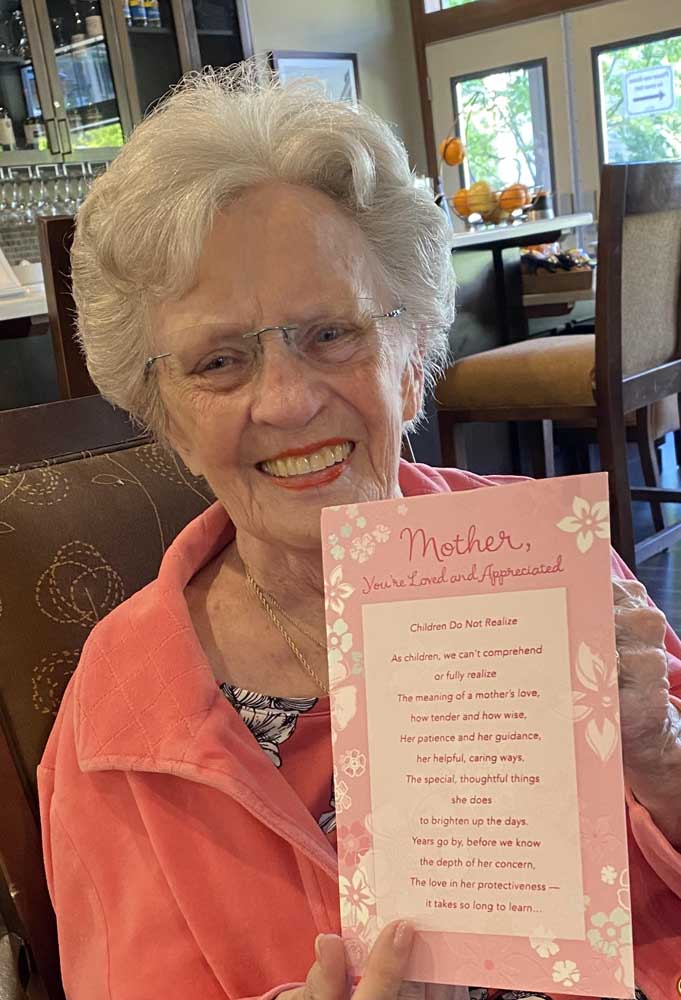 Mother,
You're Loved and Appreciated
Children Do Not Realize
As children, we can't comprehend
or fully realize
The meaning of a mother's love,
how tender and how wise,
Her patience and her guidance,
her helpful, caring ways,
The special, thoughtful things
she does
to brighten up the days.
Years go by, before we know
the depth of her concern,
The love in her protectiveness —
it takes so long to learn...